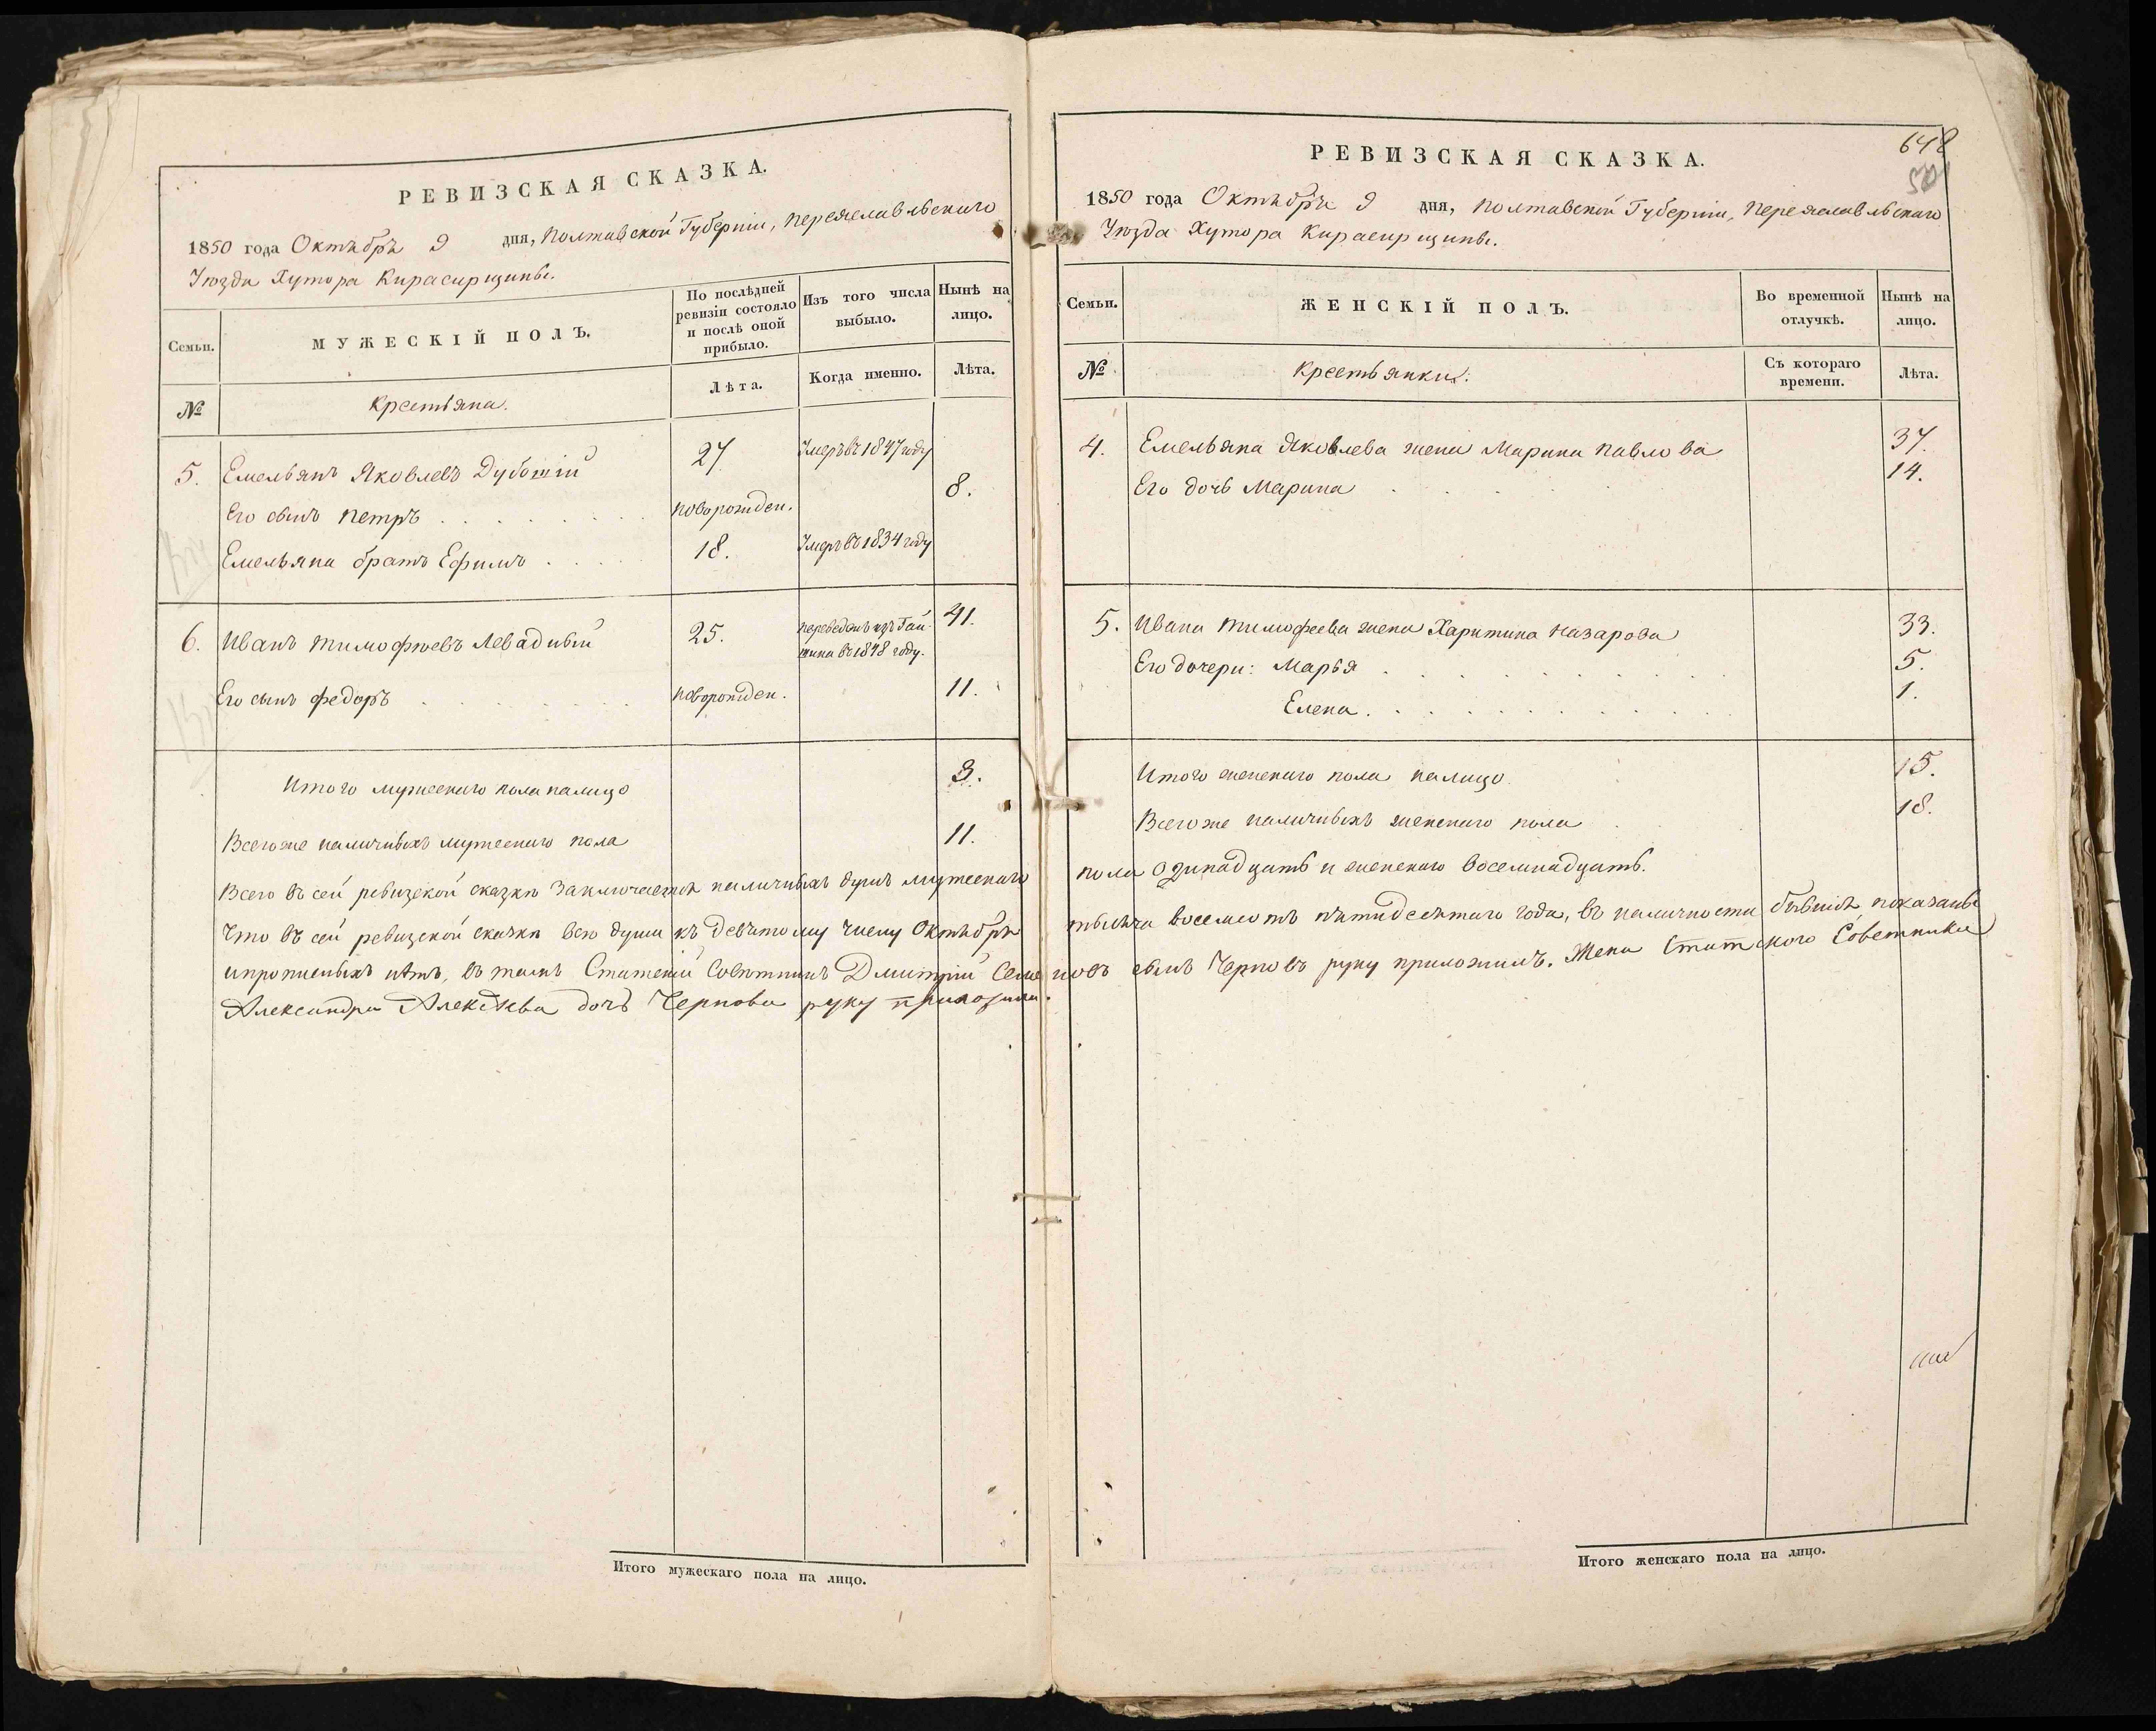 РЕВИЗСКАЯ СКАЗКА.
1850 года Октября 9 дня, Полтавской Губерніи, Переяславльскаго
Уѣзда Хутора Кирасирщины.
Семьи.
МУЖЕСКІЙ ПОЛЪ.
По послѣдней
ревизіи состояло
и послѣ оной
прибыло.
Изъ того числа
выбыло.
Нынѣ на
лицо.
№
Крестьяна.
Лѣта.
Когда именно.
Лѣта.
5. Емельянъ Яковлевъ Дубовій 27 Умеръ въ 1847 году
Его сынъ Петръ . . . . . . новорожден. 8.
Емельяна братъ Ефимъ . . . . 18. Умеръ въ 1834 году
6. Иванъ Тимофѣевъ Левадный 25. переведенъ изъ Гай-
шина въ 1848 году. 41.
Его сынъ Федоръ . . . . . . новорожден. 11.
Итого мужескаго пола налицо 3.
Всего же наличныхъ мужескаго пола 11.
Всего въ сей ревизской сказкѣ заключается наличныхъ душъ мужескаго
Что въ сей ревизской сказкѣ всѣ души къ девятому числу Октября
и прописныхъ нѣтъ, въ томъ Статскій Совѣтникъ Дмитрій Семе
Александра Алексѣева дочь Чернова руку приложила.
Итого мужескаго пола на лицо.
648
РЕВИЗСКАЯ СКАЗКА.
1850 года Октября 9 дня, Полтавской Губерніи, Переяславльскаго
Уѣзда Хутора Кирасирщины.
Семьи.
ЖЕНСКІЙ ПОЛЪ.
Во временной
отлучкѣ.
Нынѣ на
лицо.
№
Крестьянки.
Съ котораго
времени.
Лѣта.
4. Емельяна Яковлева жена Марина Павлова 37.
Его дочь Марина . . . . . 14.
5. Ивана Тимофеева жена Харитина Назарова 33.
Его дочери: Марья . . . . . . . . . . 5.
Елена . . . . . . . . . . 1.
Итого женскаго пола налицо 15.
Всего же наличныхъ женскаго пола 18.
пола одинадцать и женскаго восемнадцать.
тысяча восемсотъ пятидесятаго года, въ наличности бывшія показаны
новъ сынъ Черновъ руку приложилъ. Жена Статского Советника
Итого женскаго пола на лицо.